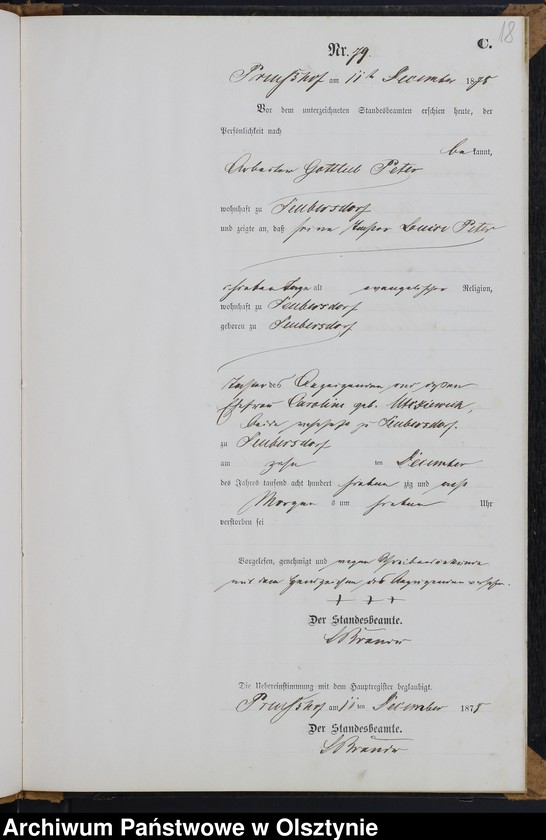 18
C.
Nr. 79.
am 11 ten December 1878
Vor dem unterzeichneten Standesbeamten erschien heute, der
Persönlichkeit nach
be kannt,
Arbeiter Gottlieb Peter
wohnhaft zu Leubersdorf
und zeigte an, daß seine Tochter Louise Peter
sieben Tage alt evangelischer Religion,
wohnhaft zu Leubersdorf
geboren zu Leubersdorf
Tochter des Anzeigenden und dessen
Ehefrau Caroline geb.
beide wohnhaft zu Leubersdorf
zu Leubersdorf
am zehn ten December
des Jahres tausend acht hundert sieben zig und acht
Morgen s um sieben Uhr
verstorben sei
Vorgelesen, genehmigt und wegen Schreibensunkunde
mit dem Handzeichen des Anzeigenden versehen.
+ + +
Der Standesbeamte.
Die Uebereinstimmung mit dem Hauptregister beglaubigt.
am 11 ten December 1878
Der Standesbeamte.
Archiwum Państwowe w Olsztynie